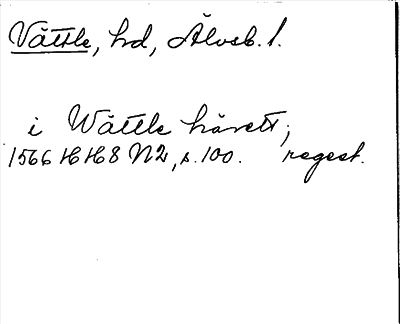 Vättle, hd, Älvsb. l.
i Wättle härett;
1566 HH8 N2, s. 100. regest.